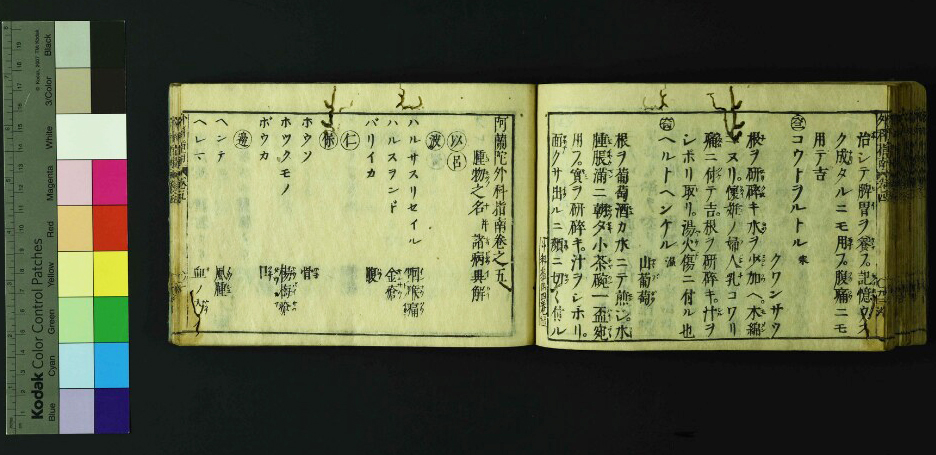 治シテ脾胃ヲ養フ記憶ウス
ク成タルニモ用フ腹痛ニモ
用テ吉
コウトヲルトル
クワンサウ
根ヲ研碎キ水ヲ少加ヘ木綿
ニヌリ。懐妊ノ婦人乳コワリ
痛ニ付テ吉。根ヲ研碎キ。汁ヲ
シボリ取リ。湯火傷ニ付ル也
ヘルトヘンケル
山葡萄
根ヲ葡萄酒カ水ニテ煎シ。水
腫脹満ニ朝夕小茶碗一盃宛
用フ實ヲ研碎キ。汁ヲシホリ。
面クサ出ルニ顔ニ切々付ル
阿蘭陀外科指南巻之五
腫物之名 并 諸病異解
以 呂
波
ハルサスリセイル 咽喉痛
ハルスランド 金瘡
バリイカ 腹
仁
保
ホウソ 骨
ホツクモノ 楊梅瘡
ボウカ 口
邊
ヘンテ 風腫
血ノ
Kodak Color Control Patches
© Kodak, 2007 TM: Kodak
Blue
Cyan
Green
Yellow
Red
Magenta
White
3/Color
Black